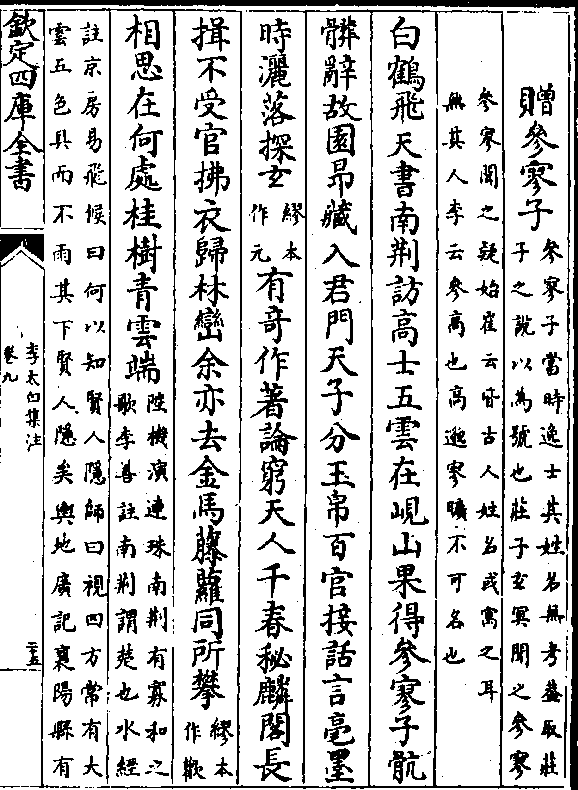 贈參寥子參寥子當時逸士其姓名無考蓋取莊子之說以為號也莊子𤣥冥聞之參寥
參寥聞之疑始崔云皆古人姓名或寓之耳無其人李云參高也高邈寥曠不可名也
白鶴飛天書南荆訪高士五雲在峴山果得參寥子骯
髒辭故園昂藏入君門天子分玉帛百官接話言毫墨
時灑落探𤣥繆本作元有奇作著論窮天人千春秘麟閣長
揖不受官拂衣歸林巒余亦去金馬藤蘿同所攀繆本作歡
相思在何處桂樹青雲端陸機演連珠南荆有寡和之歌李善註南荆謂楚也水經
註京房易飛候曰何以知賢人隱師曰視四方常有大雲五色具而不雨其下賢人隱矣輿地廣記襄陽縣有
欽定四庫全書
李太白集注
卷九
二十五